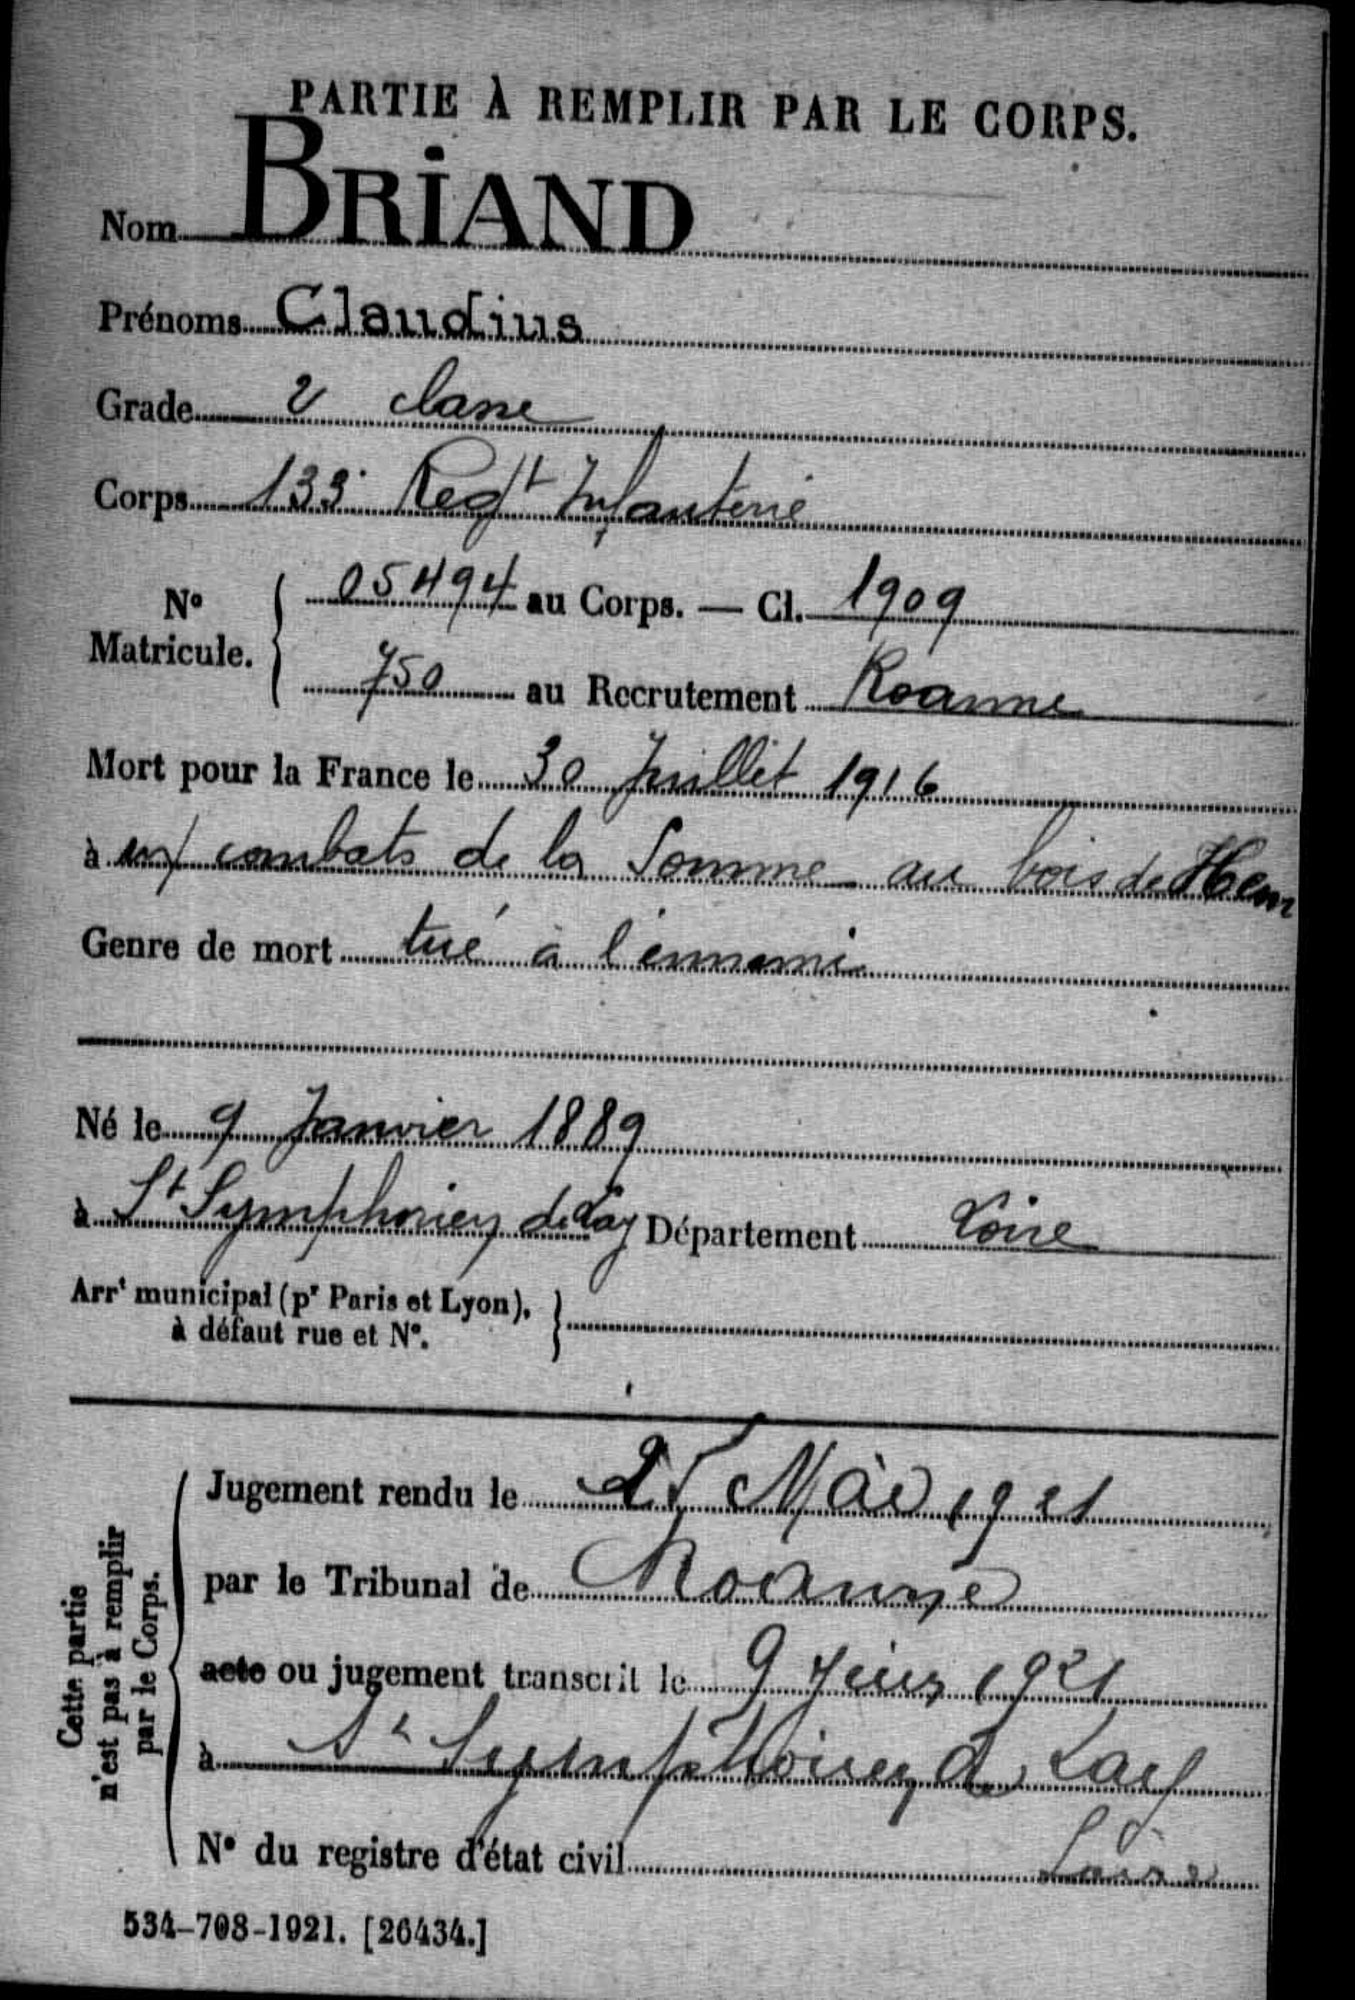 PARTIE À REMPLIR PAR LE CORPS.
Nom BRIAND
Prénoms Claudius
Grade 2 classe
Corps 133e Regt Infanterie
No Matricule. 05494 au Corps. — Cl. 1909
750 au Recrutement Roanne
Mort pour la France le 30 Juillet 1916
à combats de la Somme au bois de Hem
Genre de mort tué à l'ennemi
Né le 9 Janvier 1889
à St Symphorien de Lay Département Loire
Arrt municipal (pr Paris et Lyon),
à défaut rue et No.
Cette partie
n'est pas à remplir
par le Corps.
Jugement rendu le 25 Mai 1921
par le Tribunal de Roanne
acte ou jugement transcrit le 9 Juin 1921
à St Symphorien de Lay
Loire
No du registre d'état civil
534-708-1921. [26434.]